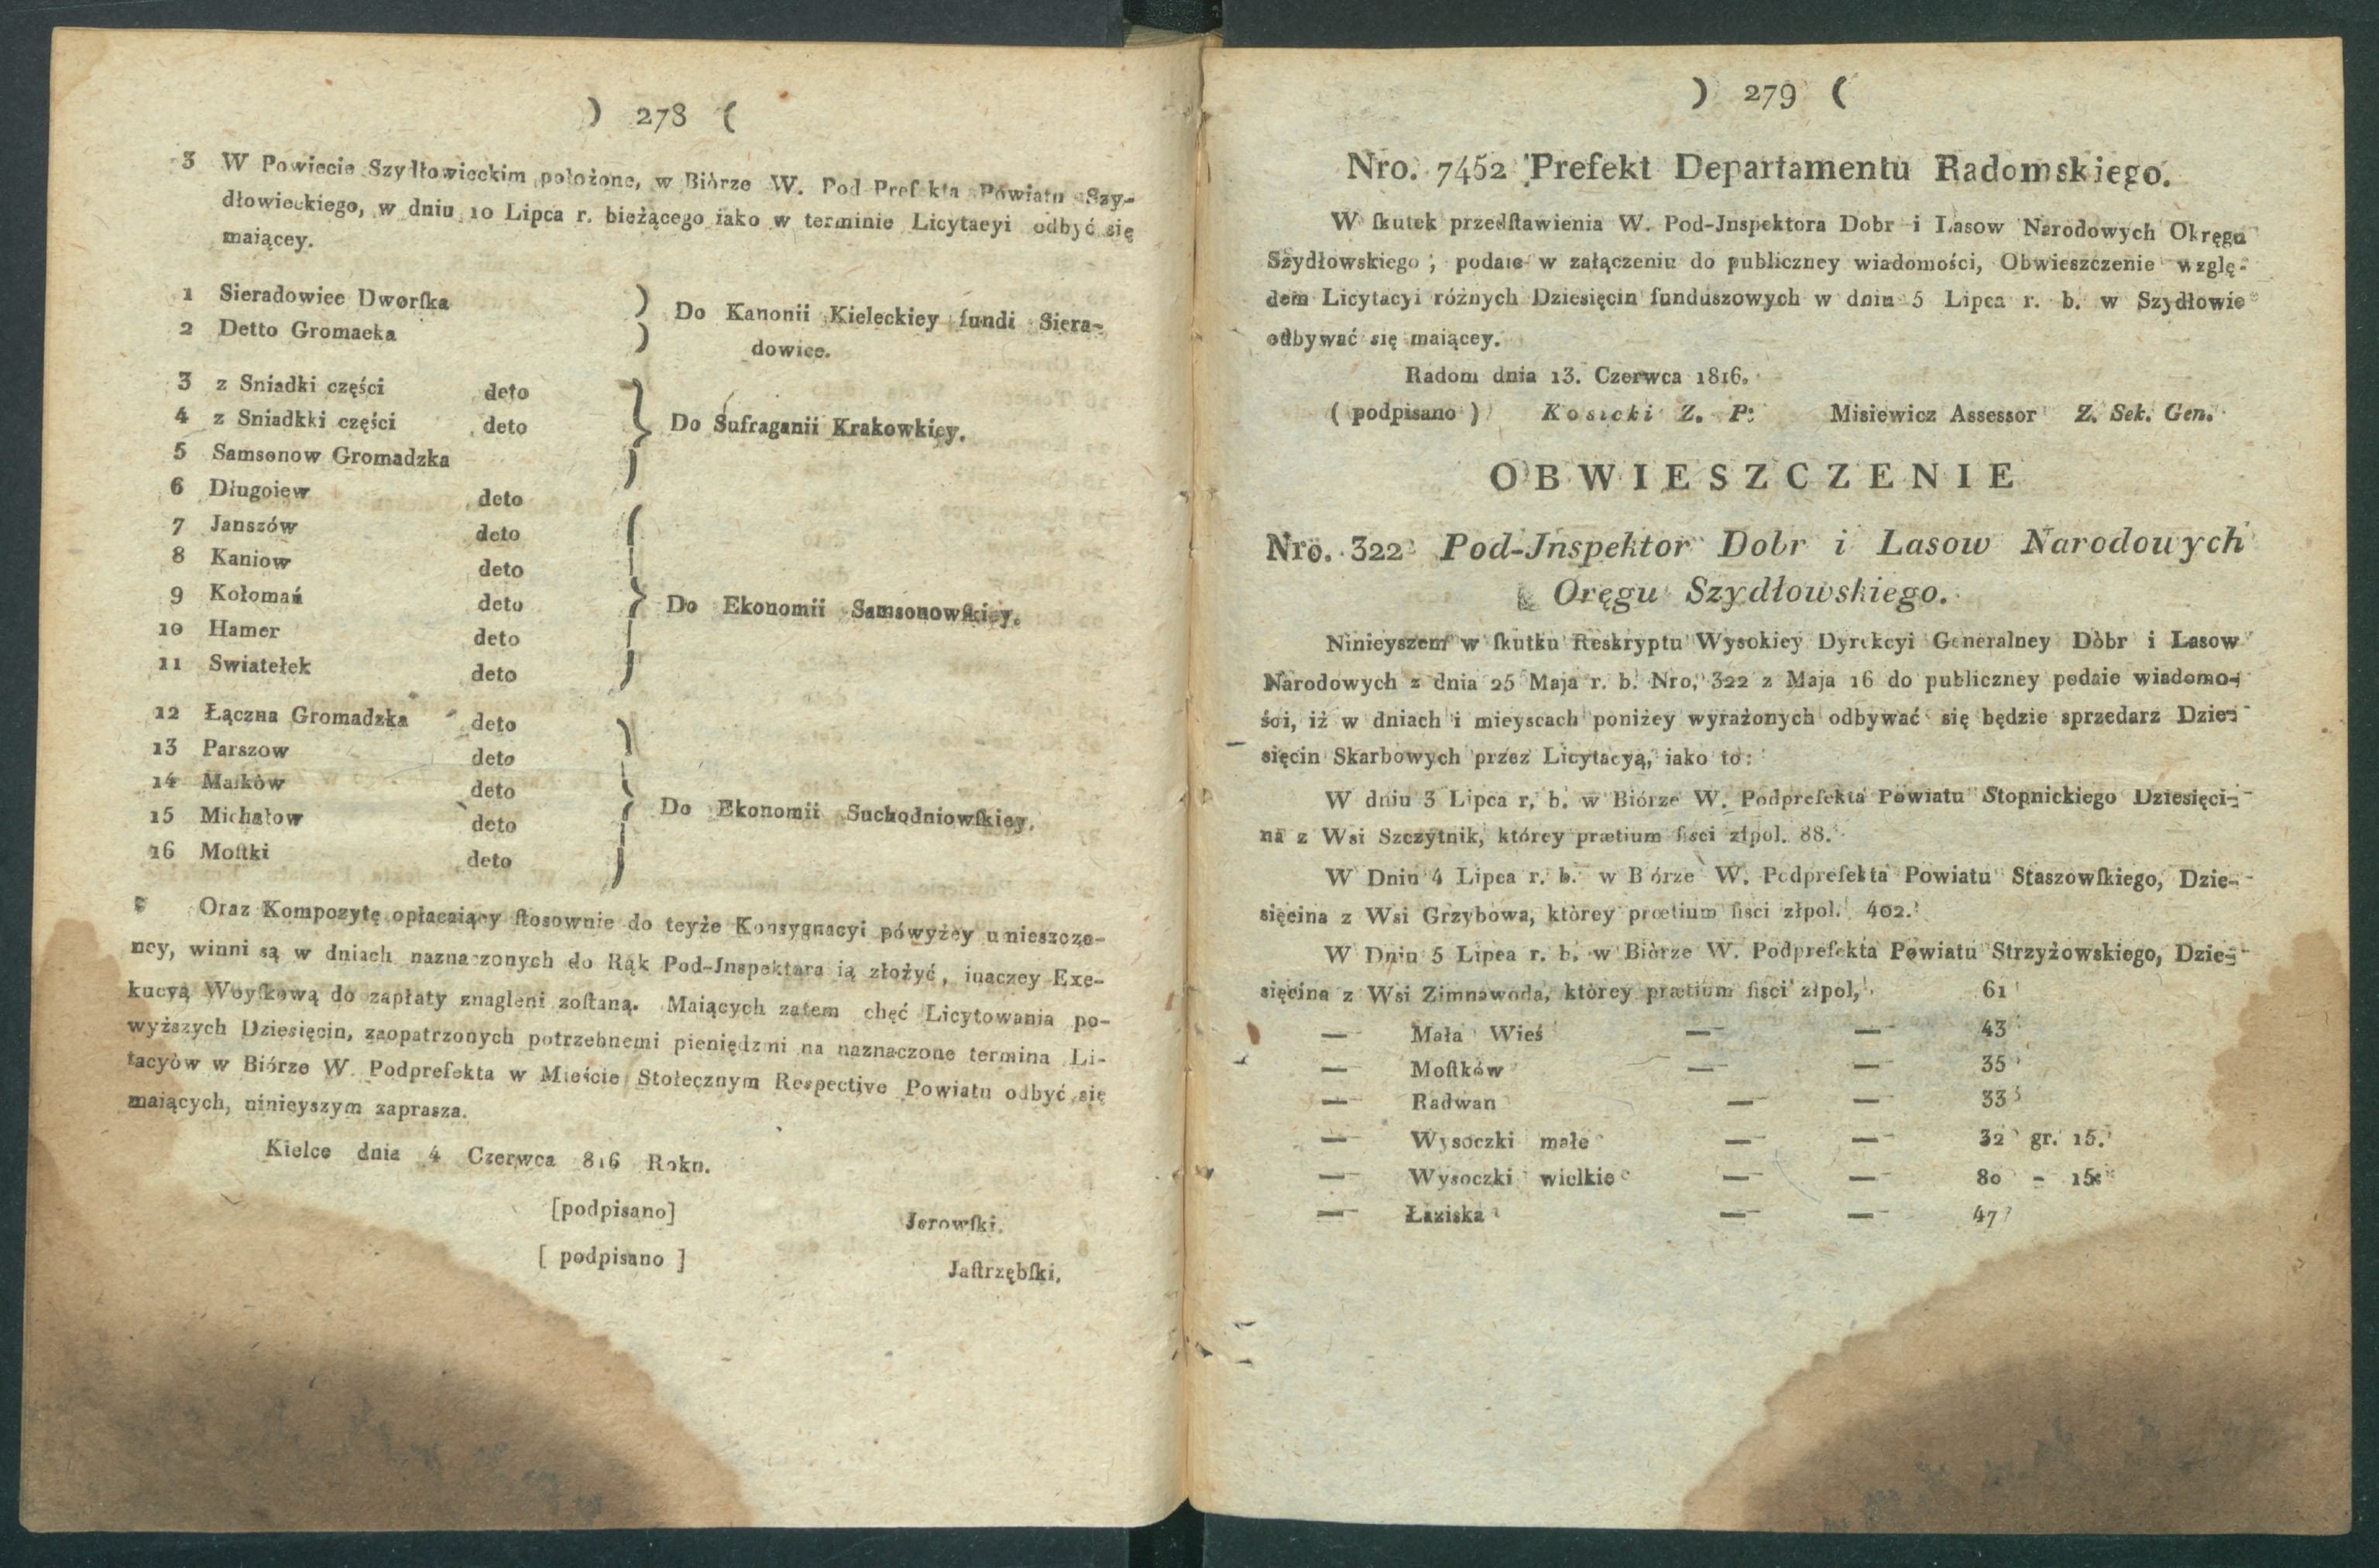 ) 278 (
3 W Powiecie Szydłowieckim położone, w Biórze W. Pod Prefekta Powiatu Szy-
dłowieckiego, w dniu 10 Lipca r. bieżącego iako w terminie Licytacyi odbyć się
maiącey.
1 Sieradowice Dworſka )
2 Detto Gromacka ) Do Kanonii Kieleckiey fundi Siera-
dowice.
3 z Sniadki części deto
4 z Sniadkki części deto } Do Sufraganii Krakowkiey.
5 Samsonow Gromadzka
6 Długoiew deto
7 Janszów deto
8 Kaniow deto
9 Kołomań deto } Do Ekonomii Samsonowſkiey.
10 Hamer deto
11 Swiatełek deto
12 Łączna Gromadzka deto
13 Parszow deto
14 Maſków deto
15 Michałow deto } Do Ekonomii Suchodniowſkiey.
16 Moſtki deto
Oraz Kompozytę opłacaiący ſtosownie do teyże Konsygnacyi pówyżey umieszczo-
ney, winni są w dniach naznaczonych do Rąk Pod-Jnspektara ią złożyć, inaczey Exe-
kucyą Woyſkową do zapłaty znagleni zoſtaną. Maiących zatem chęć Licytowania po-
wyższych Dziesięcin, zaopatrzonych potrzebnemi pieniędzmi na naznaczone termina Li-
tacyòw w Biórze W. Podprefekta w Mieście Stołecznym Respective Powiatu odbyć się
maiących, ninieyszym zaprasza.
Kielce dnia 4 Czerwca 816 Roku.
[podpisano] Jerowſki.
[ podpisano ] Jaſtrzębſki.
) 279 (
Nro. 7452 Prefekt Departamentu Radomskiego.
W ſkutek przedſtawienia W. Pod-Jnspektora Dobr i Lasow Narodowych Okręgu
Szydłowskiego, podaie w załączeniu do publiczney wiadomości, Obwieszczenie wzglę-
dem Licytacyi różnych Dziesięcin funduszowych w dniu 5 Lipca r. b. w Szydłowie
odbywać się maiącey.
Radom dnia 13. Czerwca 1816.
( podpisano ) Kosicki Z. P: Misiewicz Assessor Z. Sek. Gen.
OBWIESZCZENIE
Nro. 322 Pod-Jnspektor Dobr i Lasow Narodowych
Oręgu Szydłowskiego.
Ninieyszem w ſkutku Reskryptu Wysokiey Dyrekcyi Generalney Dòbr i Lasow
Narodowych z dnia 25 Maja r. b. Nro, 322 z Maja 16 do publiczney podaie wiadomo-
ści, iż w dniach i mieyscach poniżey wyrażonych odbywać się będzie sprzedarz Dzie-
sięcin Skarbowych przez Licytacyą, iako to:
W dniu 3 Lipca r, b. w Biórze W. Podprefekta Powiatu Stopnickiego Dziesięci-
na z Wsi Szczytnik, którey prætium fisci złpol. 88.
W Dniu 4 Lipca r. b. w Biórze W. Podprefekta Powiatu Staszowſkiego, Dzie-
sięcina z Wsi Grzybowa, którey prœtium fisci złpol. 402.
W Dniu 5 Lipca r. b. w Biòrze W. Podprefekta Powiatu Strzyżowskiego, Dzie-
sięcina z Wsi Zimnawoda, którey prætium fisci złpol, 61
— Mała Wieś — — 43
— Moſtków — — 35
— Radwan — — 33
— Wysoczki małe — — 32 gr. 15.
— Wysoczki wielkie — — 80 - 15
— Łaziska — — 47